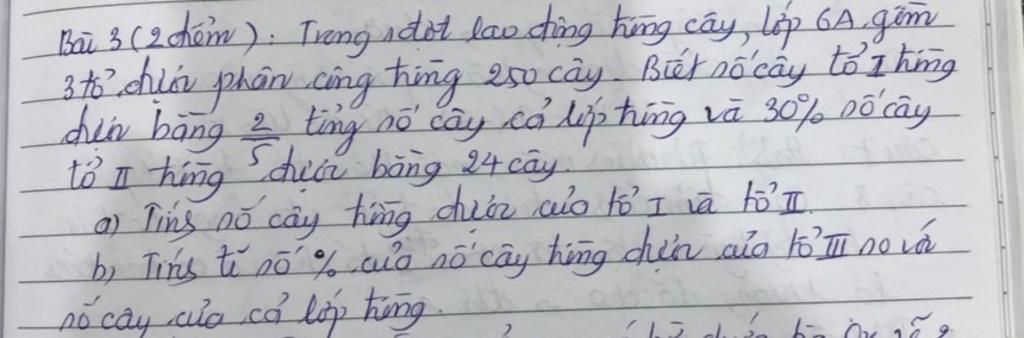 Bài 3 (2 điểm): Trong đợt lao động trồng cây, lớp 6A gồm
3 tổ được phân công trồng 250 cây. Biết số cây tổ I trồng
được bằng 2/5 tổng số cây cả lớp trồng và 30% số cây
tổ II trồng được bằng 24 cây.
a) Tính số cây trồng được của tổ I và tổ II.
b) Tính tỉ số % của số cây trồng được của tổ III so với
số cây của cả lớp trồng.